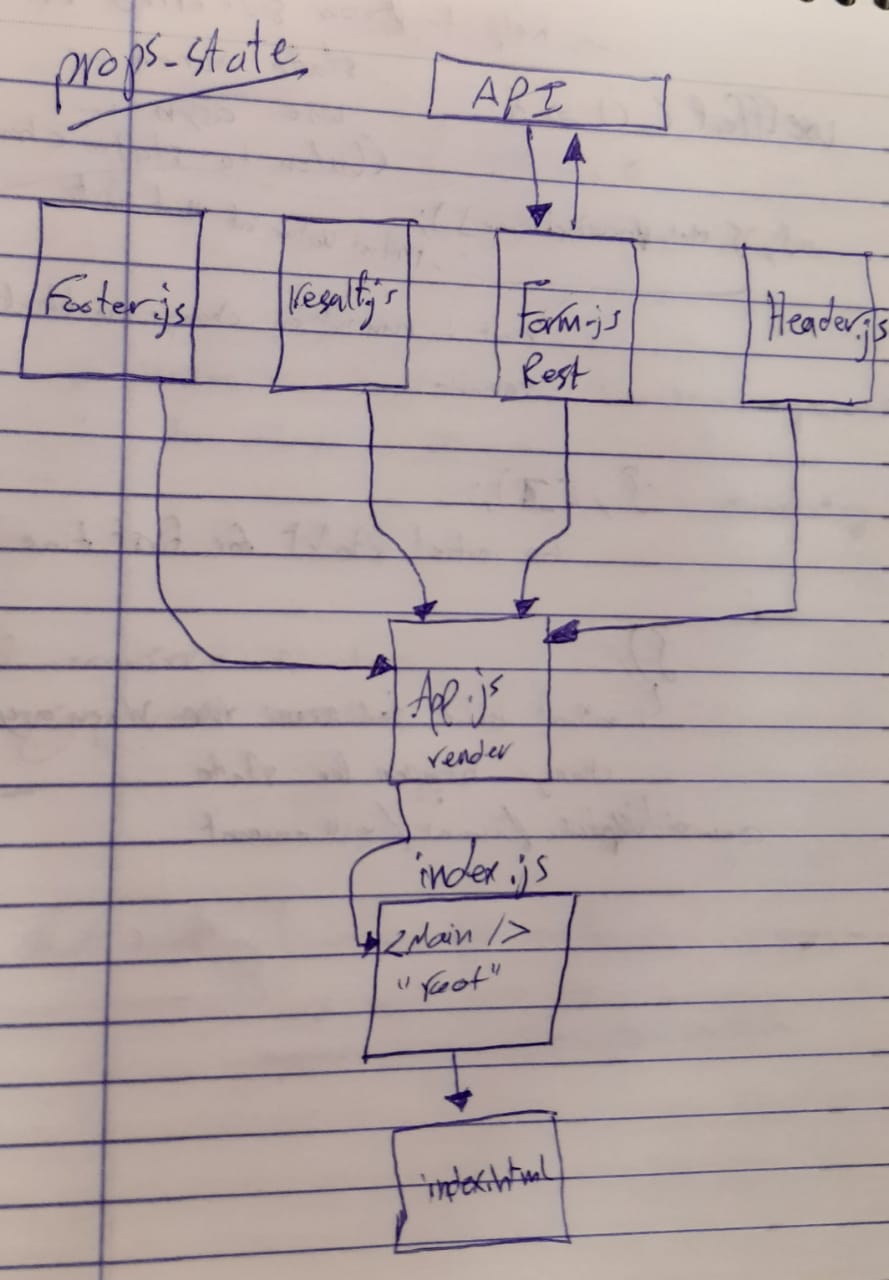 props-state
API
Footer.js
Resalt.js
Form.js
Rest
Header.js
App.js
render
index.js
<Main />
"root"
index.html